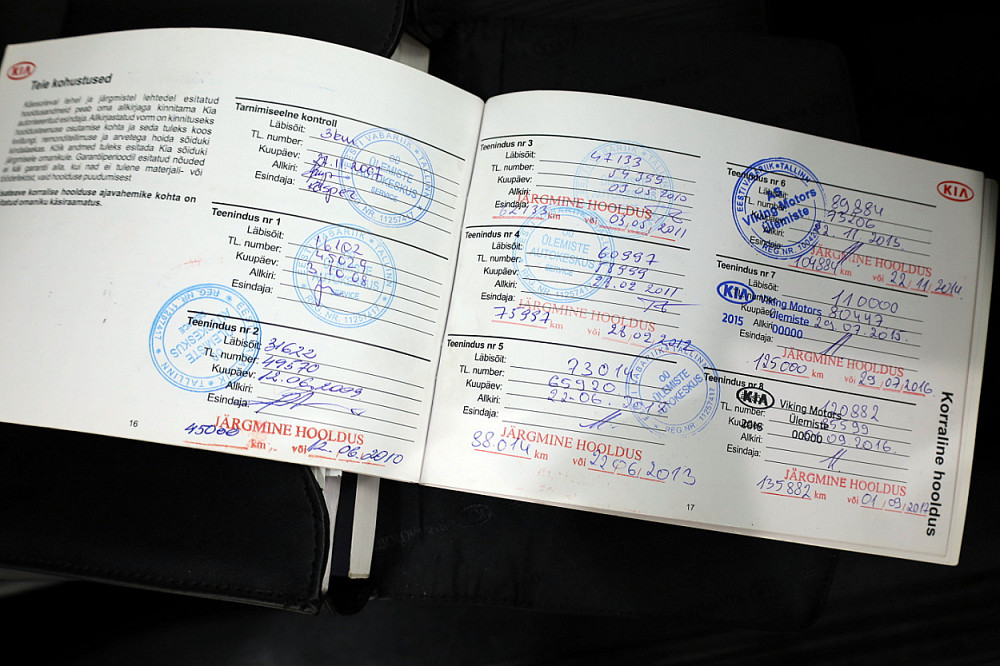 KIA
Teie kohustused
Käesoleval lehel ja järgmistel lehtedel esitatud
hooldusandmeid peab oma allkirjaga kinnitama Kia
autoriseeritud esindaja. Allkirjastatud vorm on kinnituseks
hooldusteenuse osutamise kohta ja seda tuleks koos
järgmisele omanikule. Garantiiperioodil esitatud nõuded
ei kuulu garantii alla, kui nad ei tulene materjali- või
vaid hoolduse puudumisest.
korralise hoolduse ajavahemike kohta on
esitatud omaniku käsiraamatus.
16
Tarnimiseelne kontroll
Läbisõit: 3km
TL. number:
Kuupäev:
Allkiri:
Esindaja:
EESTI VABARIIK TALLINN
OÜ
ÜLEMISTE
AUTOKESKUS
SERVICE
REG. NR. 11257417
Teenindus nr 1
Läbisõit: 16102
TL. number: 45029
Kuupäev: 3.10.08
Allkiri:
Esindaja:
Teenindus nr 2
Läbisõit: 31622
TL. number: 49570
Kuupäev: 12.06.2009
Allkiri:
Esindaja:
JÄRGMINE HOOLDUS
45000 km või 12.06.2010
Teenindus nr 3
Läbisõit: 47133
TL. number: 54355
Kuupäev: 03.05.2010
Allkiri:
Esindaja:
JÄRGMINE HOOLDUS
62133 km või 03.05.2011
Teenindus nr 4
Läbisõit: 60997
TL. number: 58559
Kuupäev: 28.02.2011
Allkiri:
Esindaja:
JÄRGMINE HOOLDUS
75997 km või 28.02.2012
Teenindus nr 5
Läbisõit: 73014
TL. number: 65920
Kuupäev: 22.06.2012
Allkiri:
Esindaja:
JÄRGMINE HOOLDUS
88.014 km või 22.06.2013
17
KIA
Teenindus nr 6
Läbisõit: 89884
TL. number: 75206
Kuupäev: 22.11.2013
Allkiri:
Esindaja:
EESTI VABARIIK TALLINN
AS
Viking Motors
Ülemiste
JÄRGMINE HOOLDUS
104884 km või 22.11.2014.
Teenindus nr 7
Läbisõit: 110000
TL. number: 80447
Kuupäev: 29.07.2015.
Allkiri:
Esindaja:
KIA Viking Motors
Ülemiste
2015 00000
JÄRGMINE HOOLDUS
125000 km või 29.07.2016.
Teenindus nr 8
Läbisõit: 120882
TL. number: 85599
Kuupäev: 09.2016.
Allkiri:
Esindaja:
KIA Viking Motors
Ülemiste
2016 00000
JÄRGMINE HOOLDUS
135882 km või 01.09.2017
Korraline hooldus